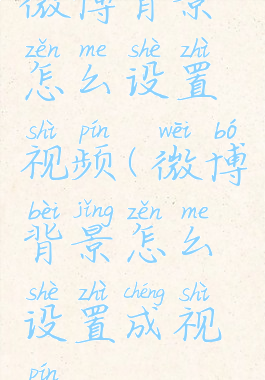 微博背景
zěn me shè zhì
怎么设置
shì pín wēi bó
视频(微博
bèi jǐng zěn me
背景怎么
shè zhì chéng shì
设置成视
pín